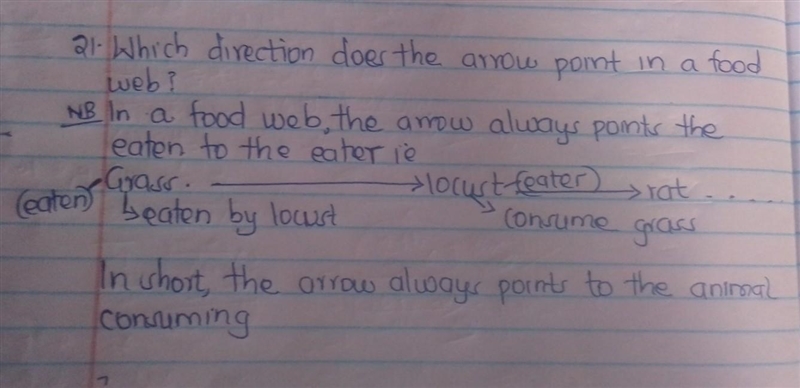 21. Which direction does the arrow point in a food
web?
NB In a food web, the arrow always points the
eaten to the eater ie
Grass. → locust (eater) → rat .....
(eaten) ↳ eaten by locust ↳ consume grass
In short, the arrow always points to the animal
consuming